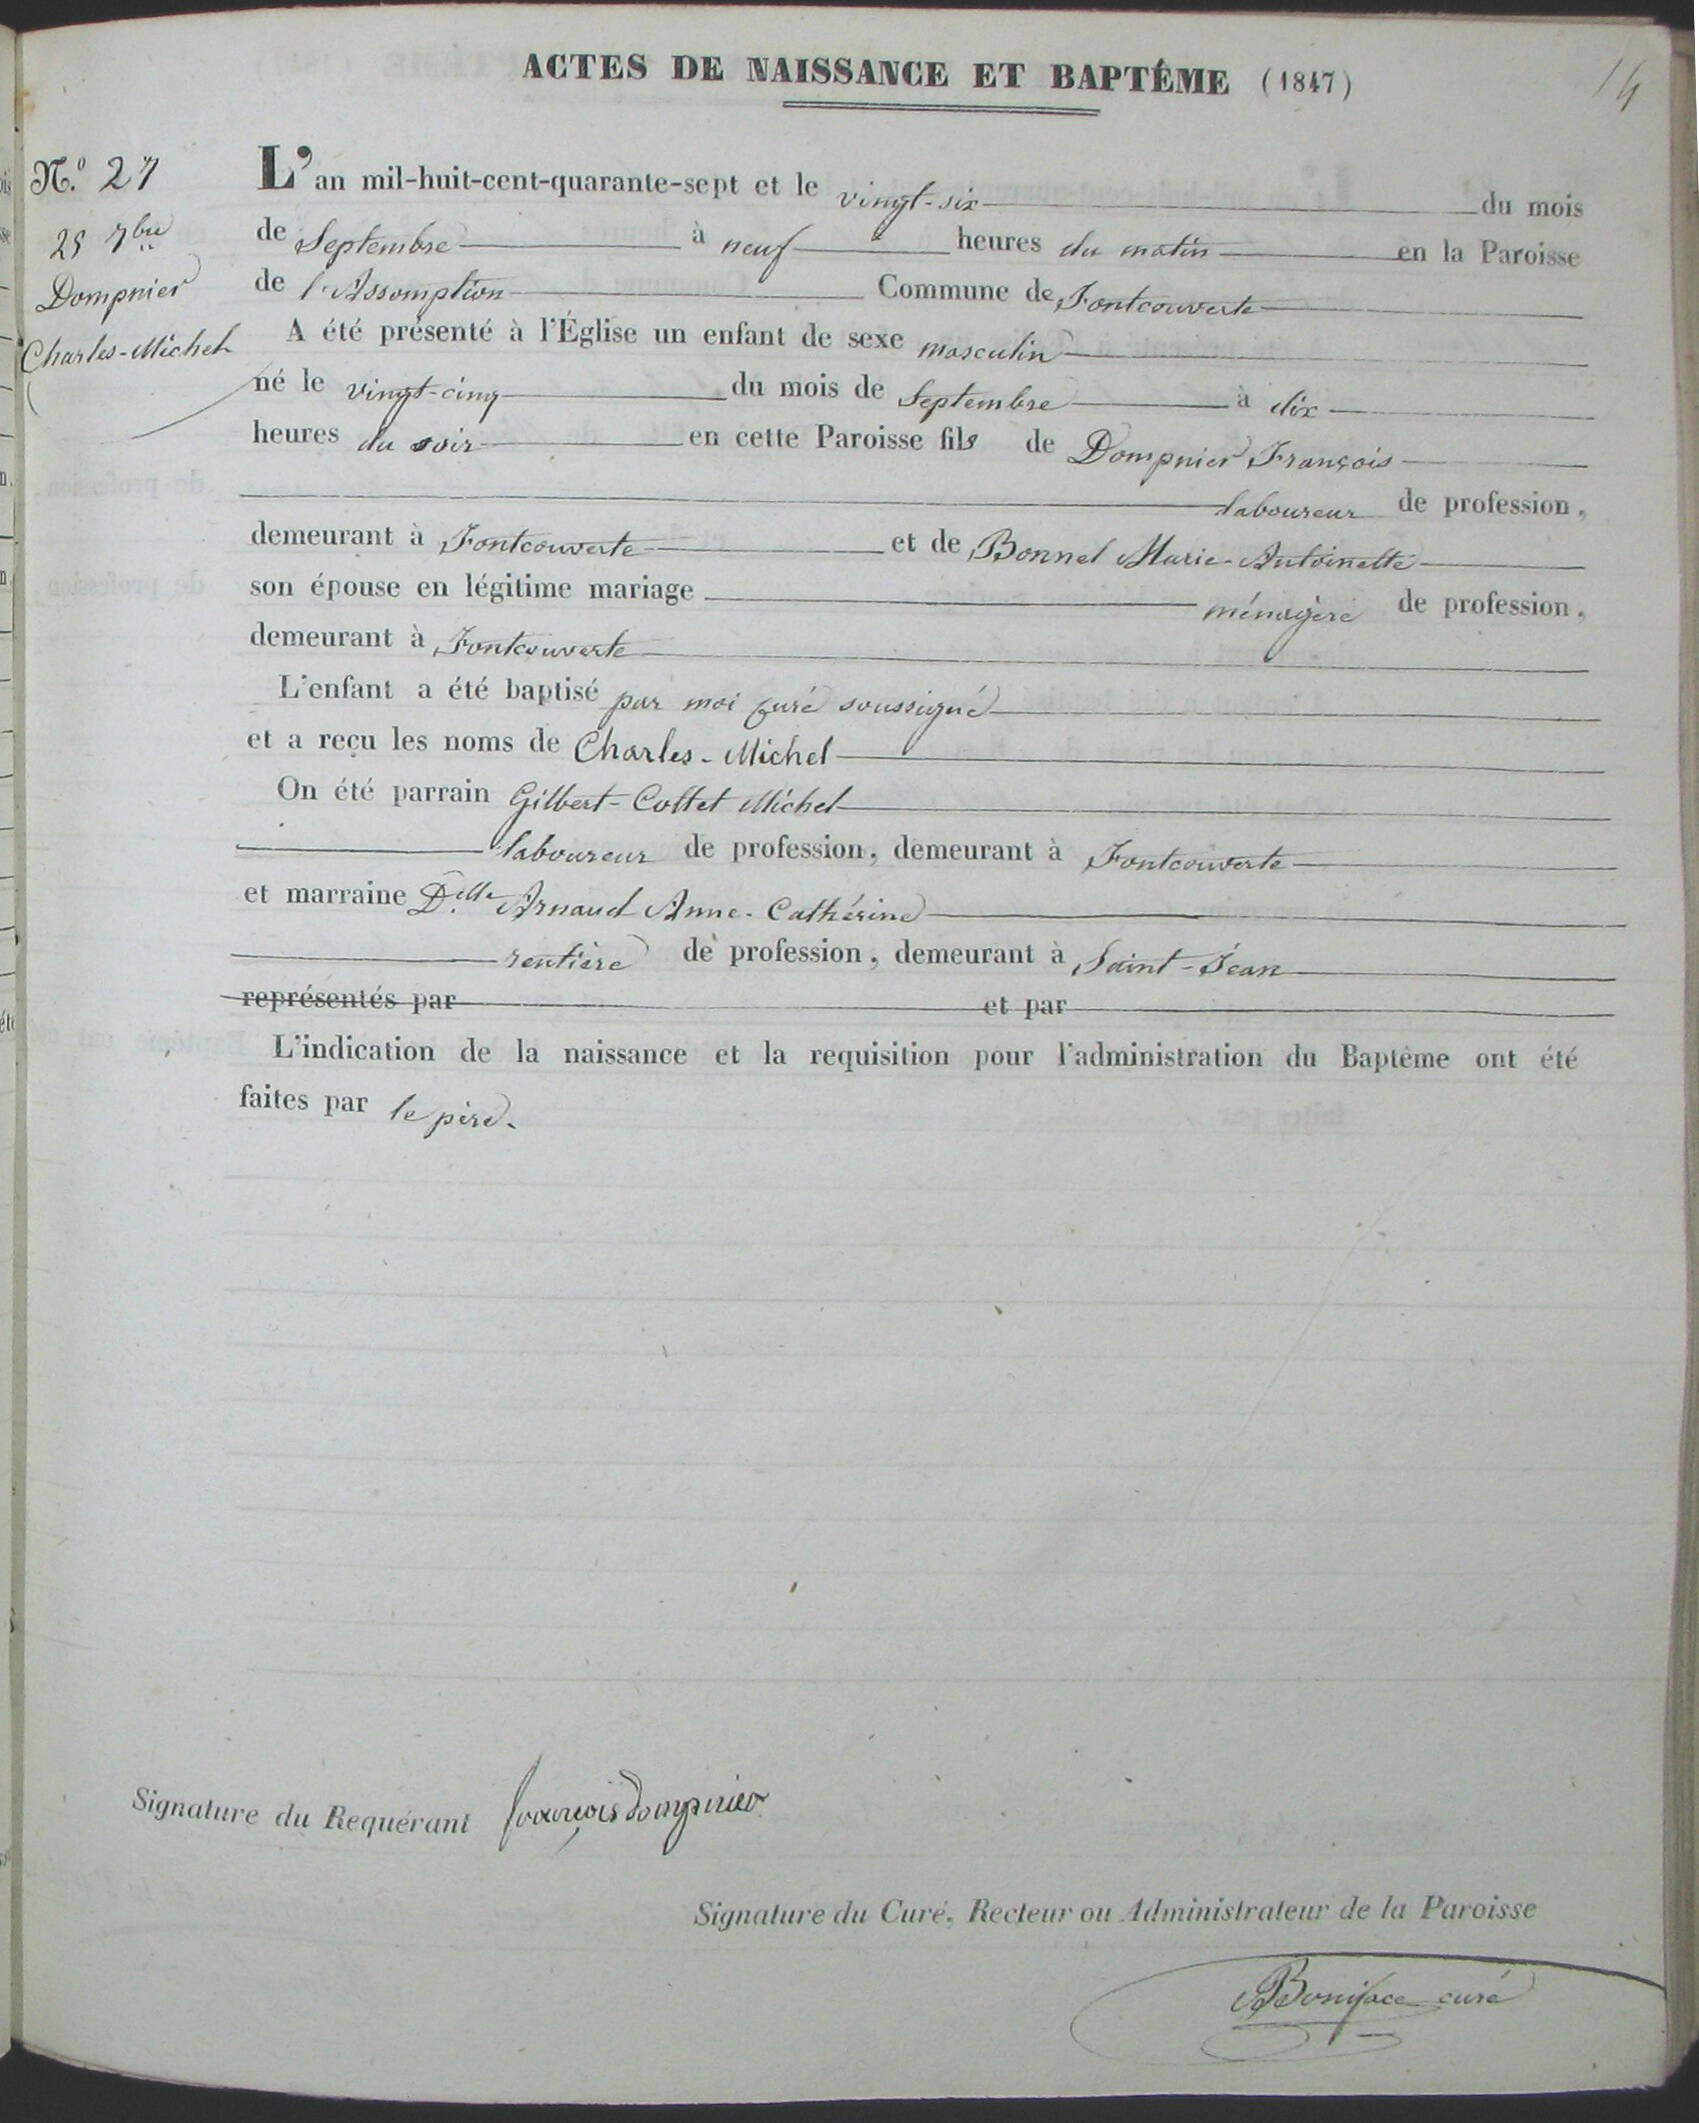 ACTES DE NAISSANCE ET BAPTÊME (1847)
14
N.o 27
25 7bre
Dompnier
Charles-Michel
L'an mil-huit-cent-quarante-sept et le vingt-six du mois
de Septembre à neuf heures du matin en la Paroisse
de l'Assomption Commune de Fontcouverte
A été présenté à l'Église un enfant de sexe masculin
né le vingt-cinq du mois de Septembre à dix
heures du soir en cette Paroisse fils de Dompnier François
laboureur de profession,
demeurant à Fontcouverte et de Bonnel Marie-Antoinette
son épouse en légitime mariage ménagère de profession,
demeurant à Fontcouverte
L'enfant a été baptisé par moi curé soussigné
et a reçu les noms de Charles-Michel
On été parrain Gilbert-Collet Michel
laboureur de profession, demeurant à Fontcouverte
et marraine D.elle Arnaud Anne-Cathérine
rentière de profession, demeurant à Saint-Jean
représentés par et par
L'indication de la naissance et la requisition pour l'administration du Baptême ont été
faites par le père.
Signature du Requérant françois dompnier
Signature du Curé, Recteur ou Administrateur de la Paroisse
Boniface curé